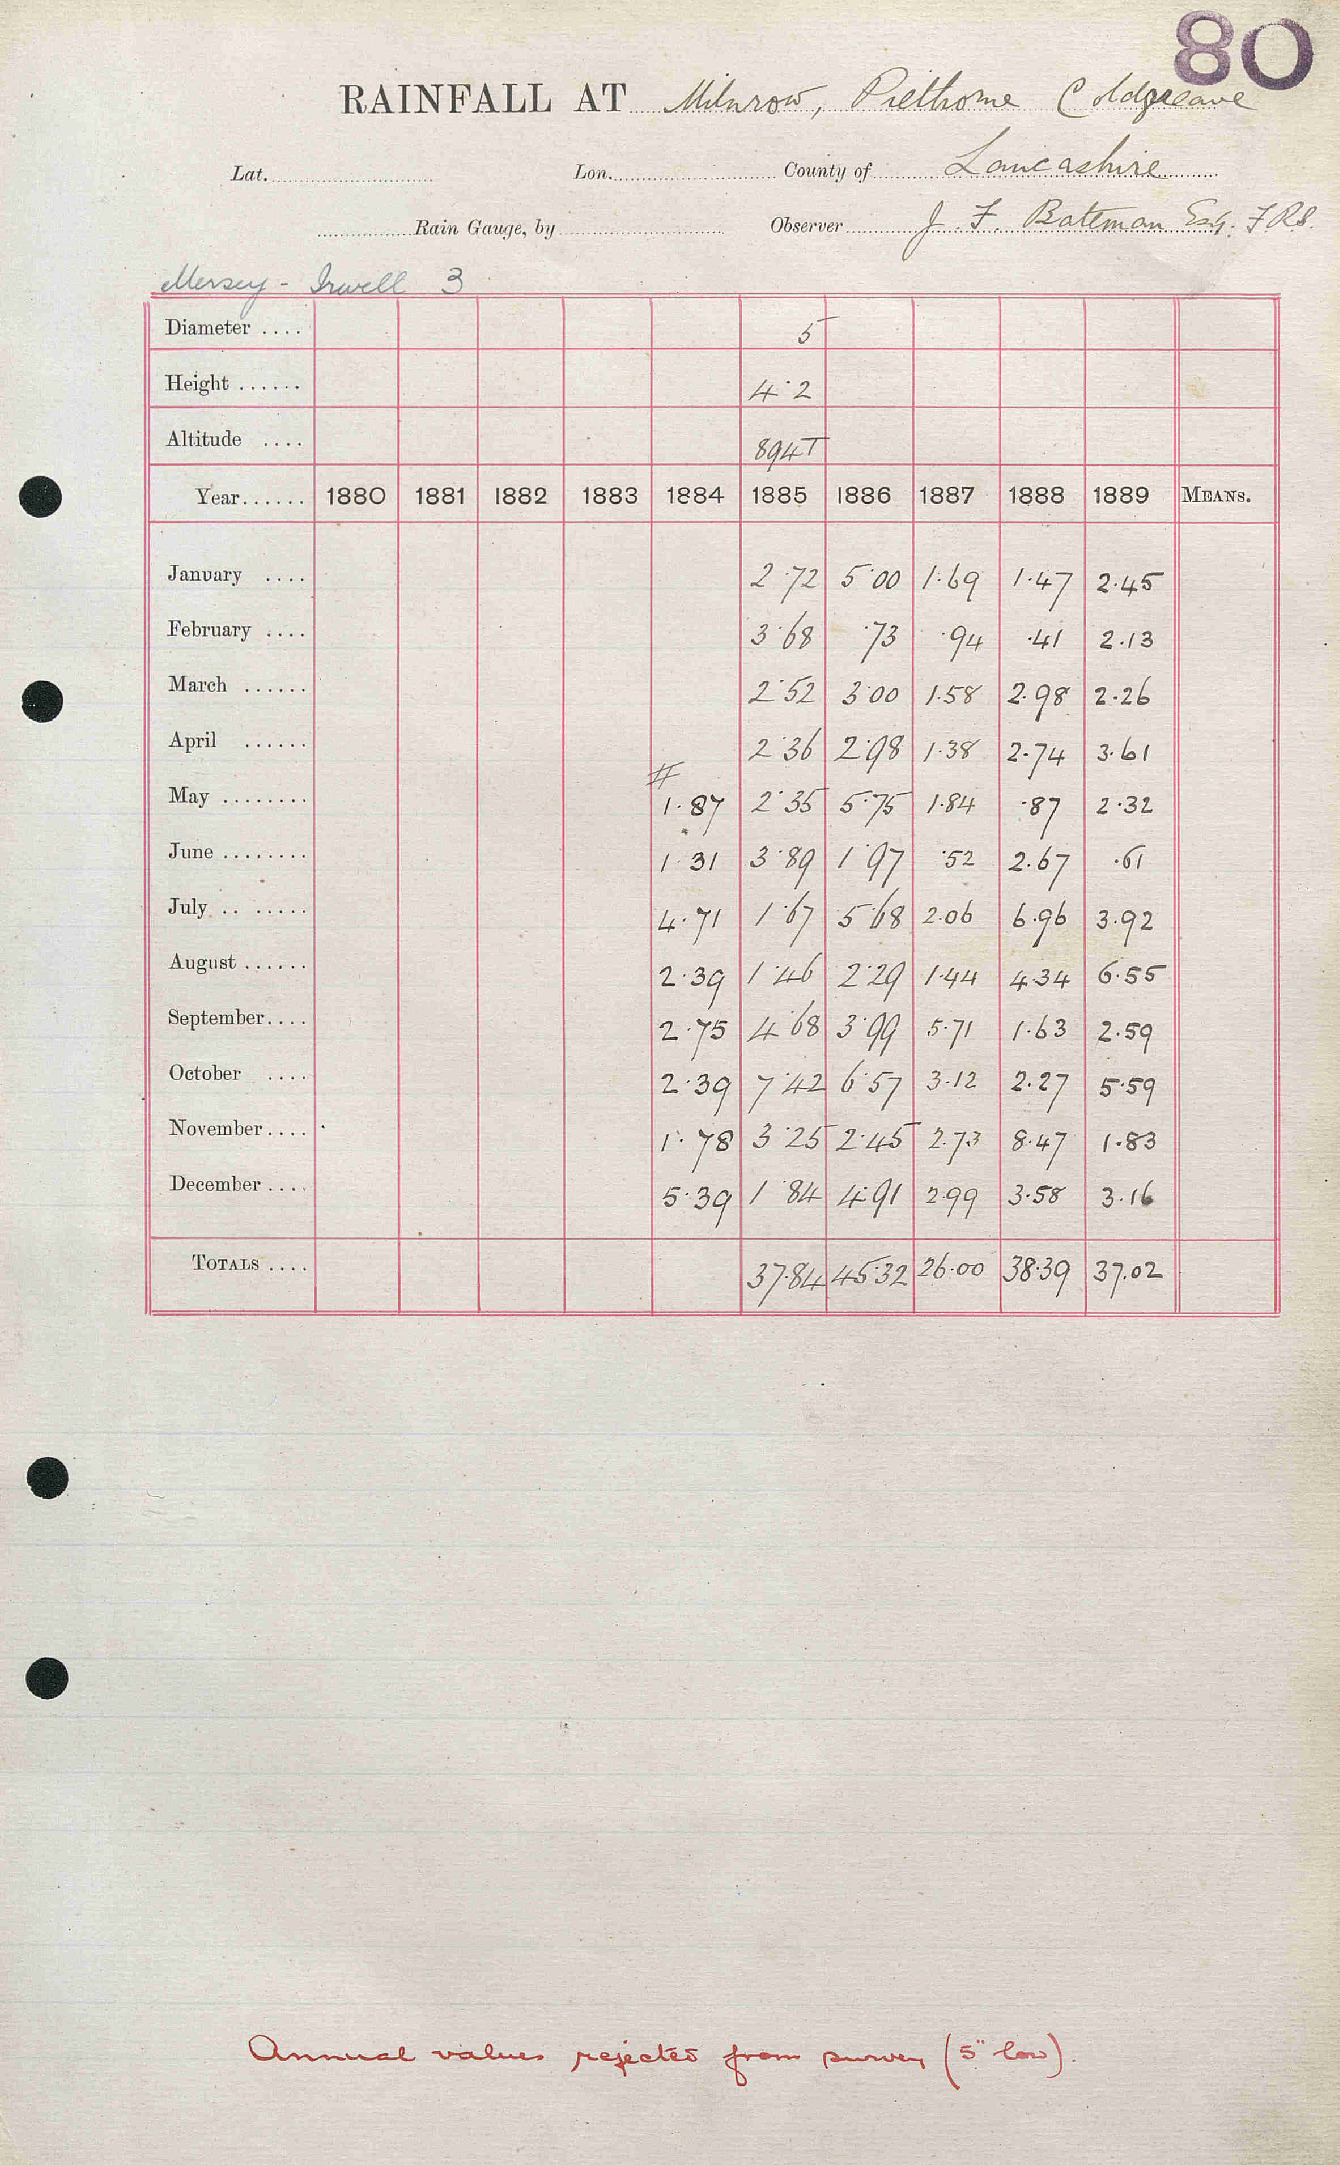 80
RAINFALL AT Milnrow, Piethorne Coldgreave
Lat. Lon. County of Lancashire
Rain Gauge, by Observer J. F. Bateman Esq. F.R.S.
Mersey - Irwell 3
Diameter .... 5
Height ...... 4.2
Altitude .... 894 T
Year...... 1880 1881 1882 1883 1884 1885 1886 1887 1888 1889 MEANS.
January .... 2.72 5.00 1.69 1.47 2.45
February .... 3.68 .73 .94 .41 2.13
March ...... 2.52 3.00 1.58 2.98 2.26
April ...... 2.36 2.98 1.38 2.74 3.61
#
May ........ 1.87 2.35 5.75 1.84 .87 2.32
June ........ 1.31 3.89 1.97 .52 2.67 .61
July .. ..... 4.71 1.67 5.68 2.06 6.96 3.92
August ...... 2.39 1.46 2.29 1.44 4.34 6.55
September.... 2.75 4.68 3.99 5.71 1.63 2.59
October .... 2.39 7.42 6.57 3.12 2.27 5.59
November.... 1.78 3.25 2.45 2.73 8.47 1.83
December .... 5.39 1.84 4.91 2.99 3.58 3.16
TOTALS .... 37.84 45.32 26.00 38.39 37.02
Annual values rejected from survey (5" low).